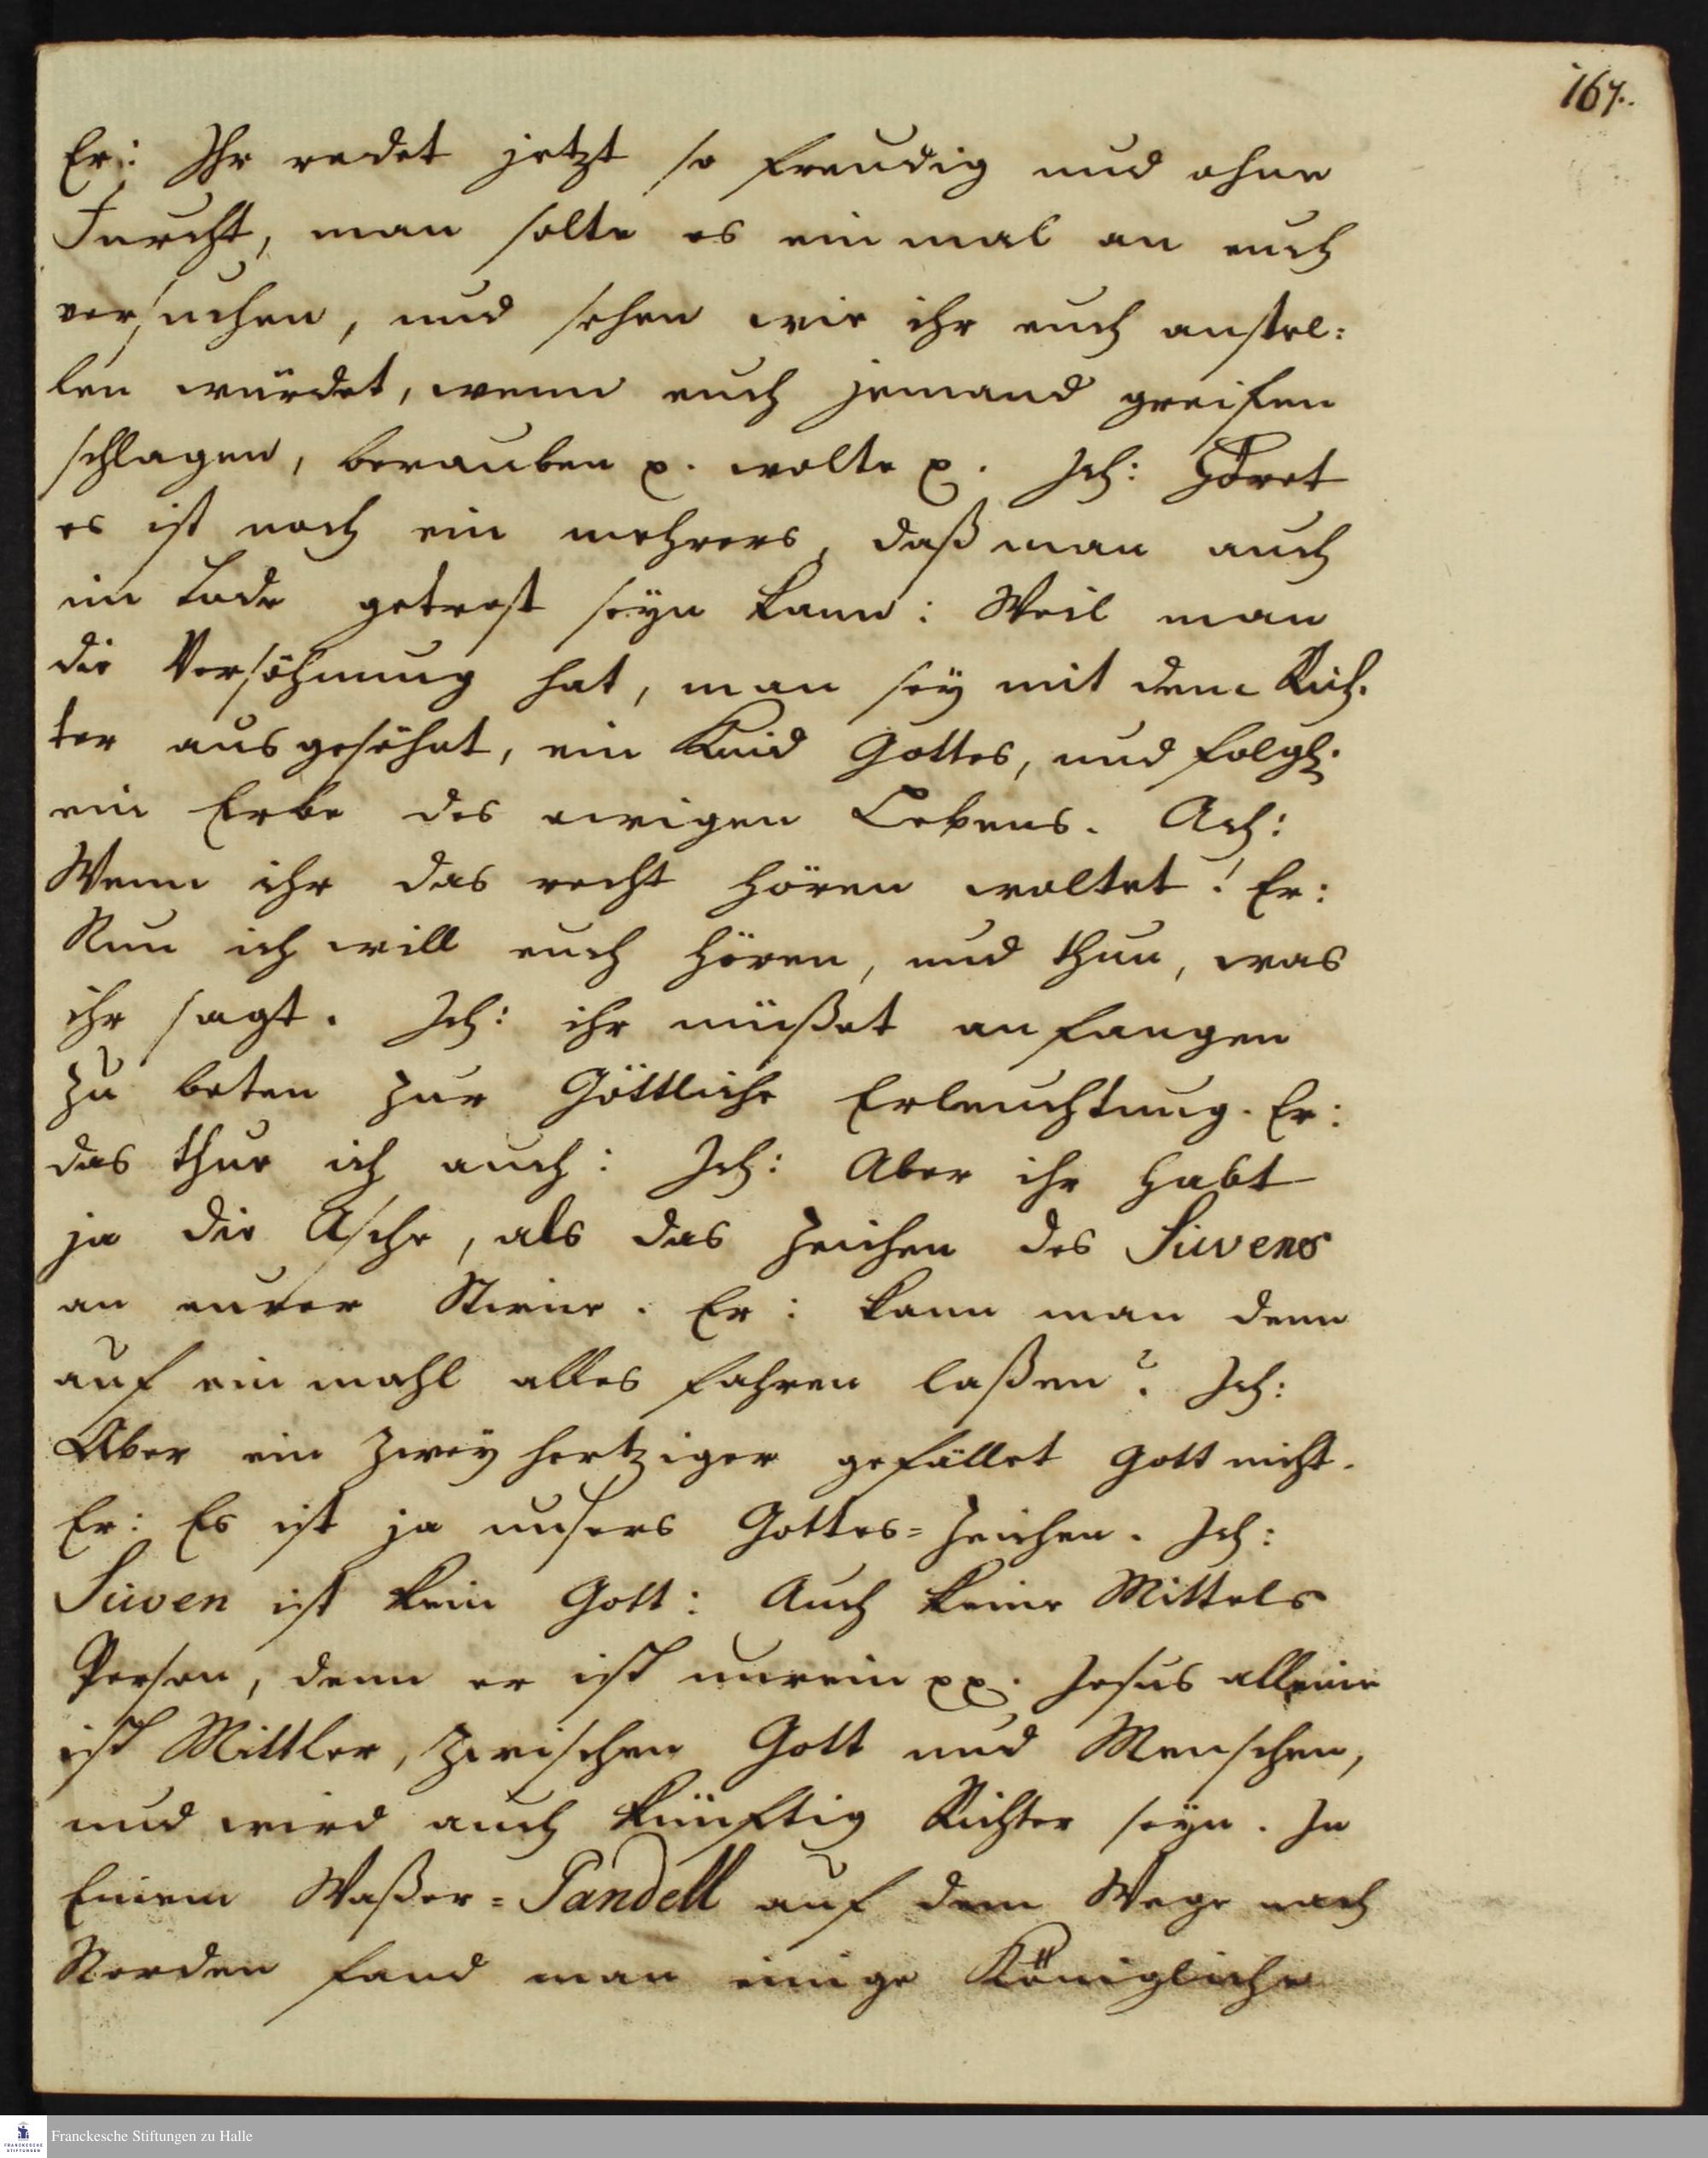 167.
Er: Ihr redet jetzt so freudig und ohne
Furcht, man solte es einmal an euch
versuchen, und sehen wie ihr euch anstel:
len würdet, wenn euch jemand greifen
schlagen, berauben p. wolte p. Ich: Höret
es ist noch ein mehrers, daß man auch
im Tode getrost seyn kann: Weil man
die Versöhnung hat, man sey mit dem Rich.
ter ausgesöhnt, ein Kind Gottes, und folgl.
ein Erbe des ewigen Lebens. Ach:
Wenn ihr das recht hören woltet! Er:
Nun ich will euch hören, und thun, was
ihr sagt. Ich: ihr müßet anfangen
zu beten zur Göttliche Erleuchtung. Er:
das thue ich auch: Ich: Aber ihr habt
ja die Asche, als das Zeichen des Siuvens
an eurer Stirne. Er: kann man denn
auf ein mahl alles fahren laßen? Ich:
Aber ein zwey hertziger gefället Gott nicht.
Er: Es ist ja unsers Gottes=Zeichen. Ich:
Siuven ist kein Gott: Auch keine Mittels
Person, denn er ist unrein pp. Jesus alleine
ist Mittler, zwischen Gott und Menschen,
und wird auch künftig Richter seyn. In
Einem Waßer=Pandell auf dem Wege nach
Norden fand man einige Königliche
Franckesche Stiftungen zu Halle
FRANCKESCHE
STIFTUNGEN